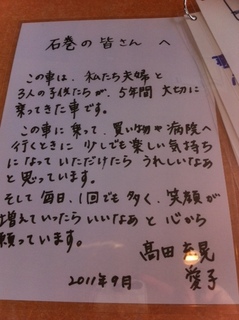 石巻の皆さん へ
この車は、私たち夫婦と
3人の子供たちが、5年間 大切に
乗ってきた車です。
この車に乗って、買い物や病院へ
行くときに 少しでも楽しい気持ち
になっていただけたら うれしいなぁ
と思っています。
そして 毎日、1回でも 多く、笑顔が
増えていったらいいなあと 心から
願っています。
髙田 晃
愛子
2011年9月